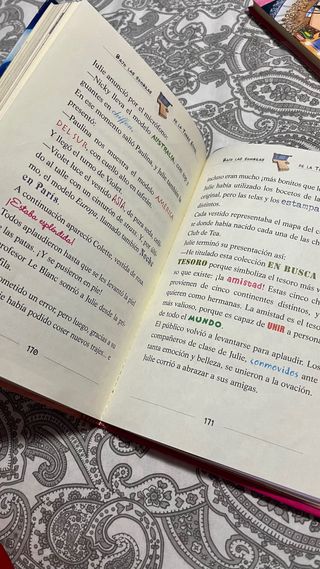 BAJO LAS SOMBRAS
Julie anunció por el micrófono:
—Nicky lleva el modelo AUSTRALIA, con
guantes en chiffon.
En ese momento salió Paulina y Julie también
presentó:
—Paulina nos muestra el modelo AMÉRICA
DEL SUR, con cuello alto en
Y llegó el turno de Violet.
—Violet luce el vestido ASIA, de
do al talle con un cinturón de
A continuación apareció Colette, vestida de
mo, el modelo Europa, llamado también Noche
en París.
¡Estaba espléndida!
Todos aplaudieron hasta que se les levantó la piel
las patas. ¡Y se pusieron en pie!
profesor Le Blanc sonrió a Julie desde la
fila.
ometido un error, pero luego, gracias a su
le había podido coser nuevos trajes... e
170
BAJO LAS SOMBRAS
DE LA
cluso eran mucho ¡más bonitos que l
Julie había utilizado los bocetos de la
original, pero las telas y los estampa
distintos.
Cada vestido representaba el mapa del c
te donde había nacido cada una de las ch
Club de Tea.
Julie terminó su presentación así:
—He titulado esta colección EN BUSCA
TESORO porque simboliza el tesoro más
so que existe: ¡la amistad! Estas cinco ch
provienen de cinco continentes distintos, y
quieren como hermanas. La amistad es el tesor
más valioso, porque es capaz de UNIR a persona
de todo el MUNDO.
El público volvió a levantarse para aplaudir. Los
compañeros de clase de Julie, conmovidos ante
tanta emoción y belleza, se unieron a la ovación.
Julie corrió a abrazar a sus amigas.
171